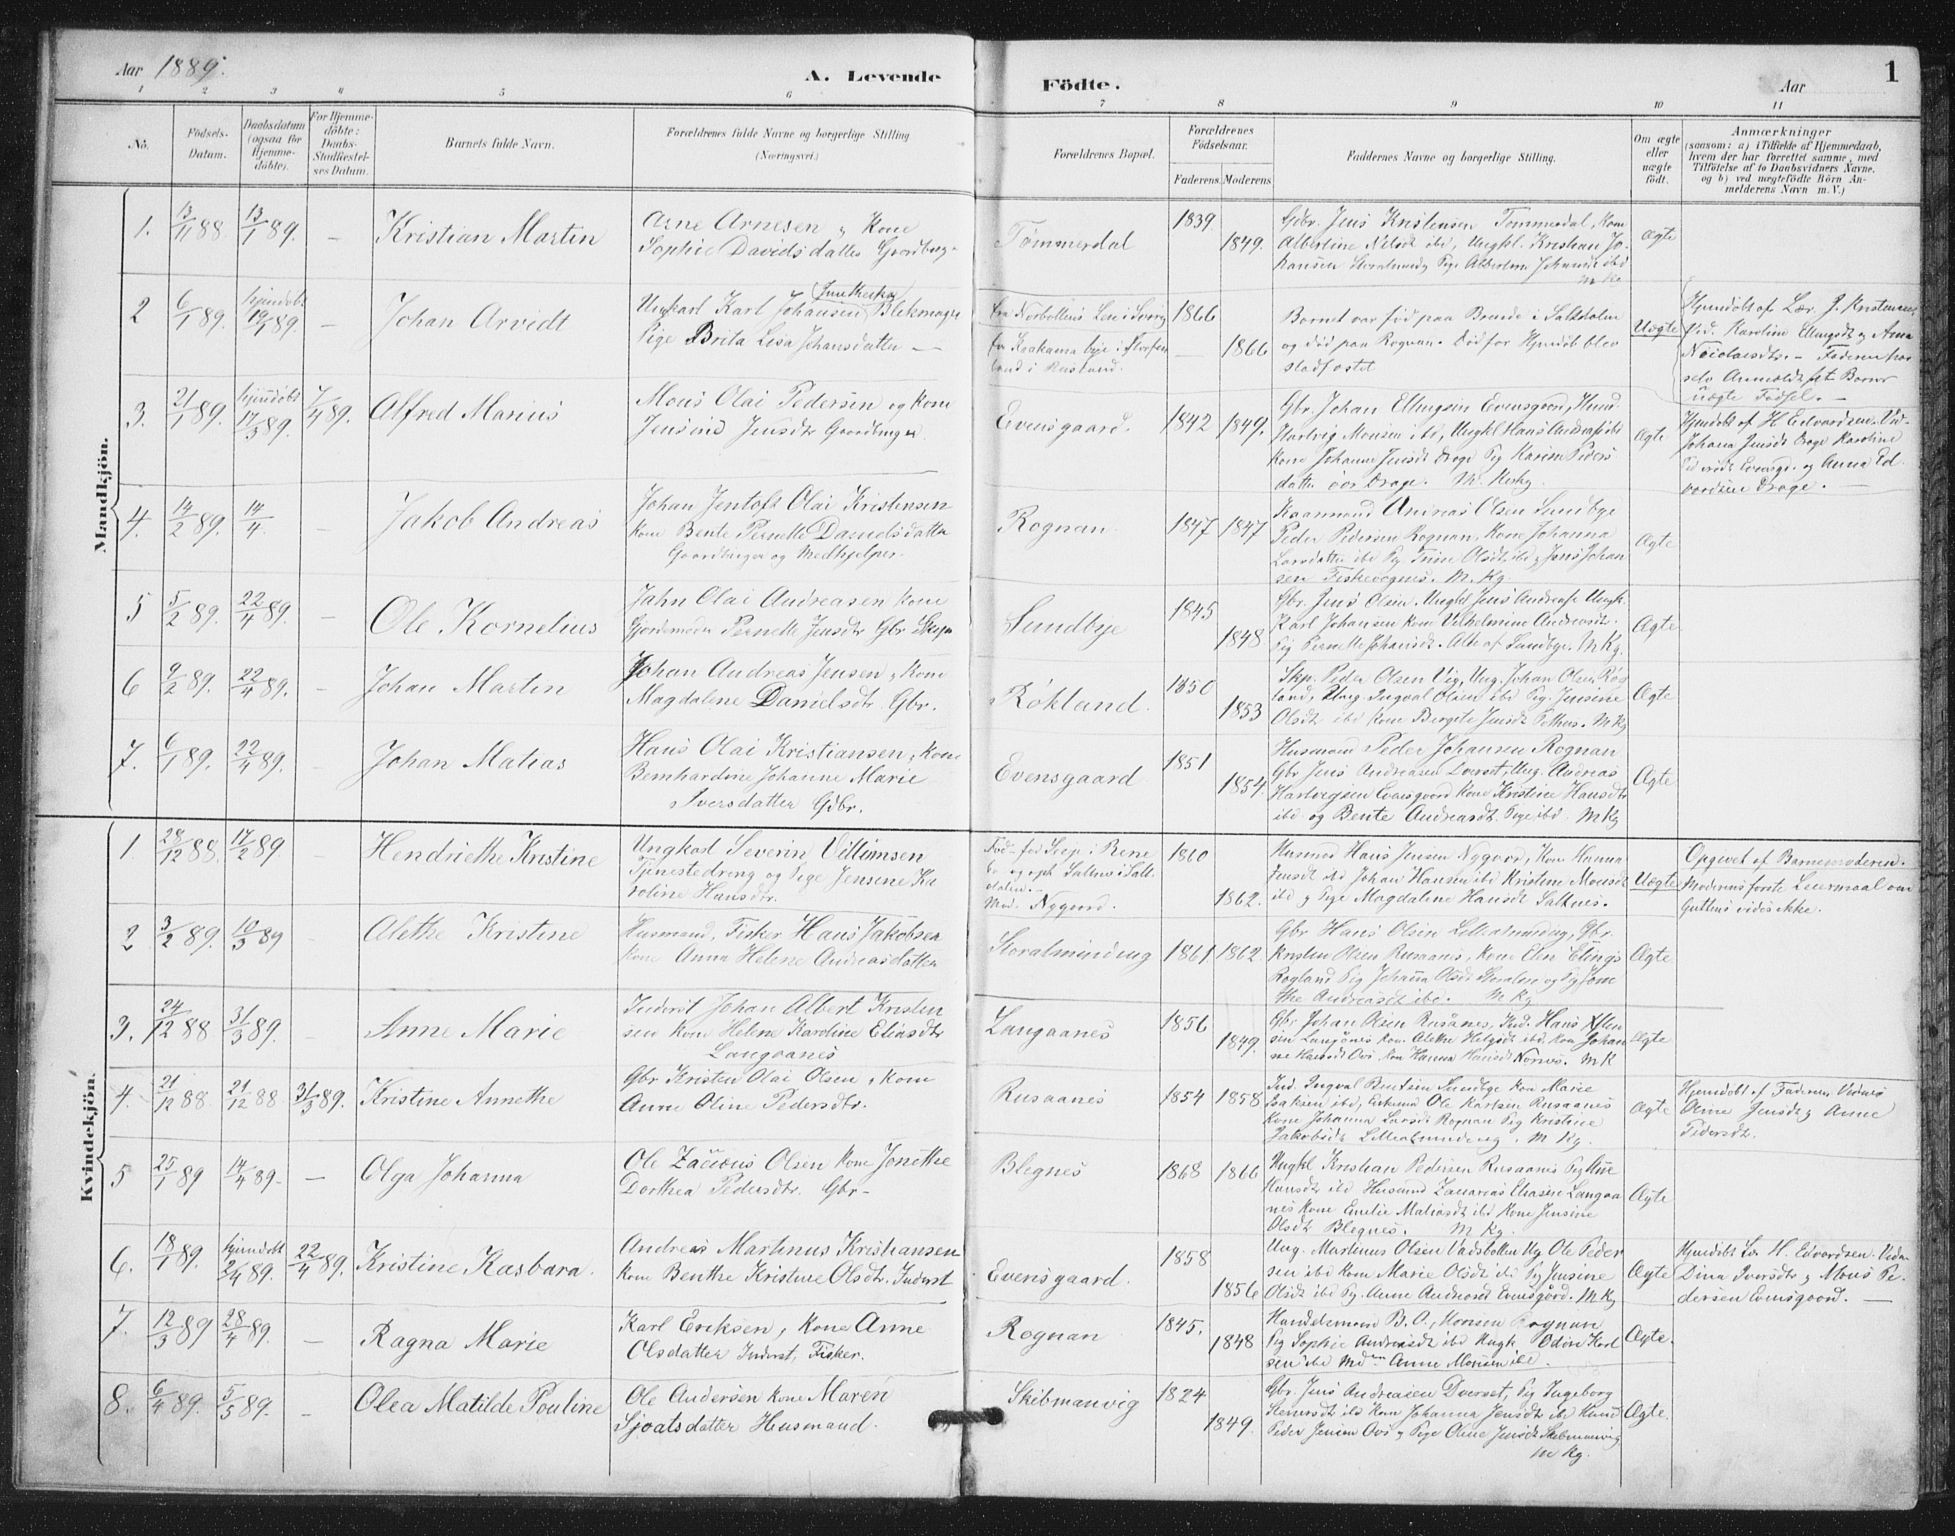 Aar 1889.
A. Levende
Födte.
Aar
1
1 2 3 4 5 6 7 8 9 10 11
No.
Födsels-
Datum.
Daabsdatum
(ogsaa for
Hjemme-
döbte).
For Hjemme-
döbte:
Daabs-
Stadfæstel-
ses Datum.
Barnets fulde Navn.
Forældrenes fulde Navne og borgerlige Stilling
(Næringsvei.)
Forældrenes Bopæl.
Forældrenes
Födselsaar.
Faderens. Moderens
Faddernes Navne og borgerlige Stilling.
Om ægte
eller
uægte
födt.
Anmærkninger
(saasom: a) i Tilfælde af Hjemmedaab,
hvem der har forrettet samme, med
Tilföielse af to Daabsvidners Navne,
og b) ved uægtefödte Börn An-
melderens Navn m. V.)
Mandkjön.
1. 13/11 88. 13/1 89. - Kristian Martin
Arne Arnesen, Kone
Sophie Davidsdatter Gaardbrug-
Tømmerdal
1839
1849.
Gbr. Jens Kristensen Tømmerdal, Kone
Albertine Nilsdt ibd, Ungkl. Kristian Jo-
hansen Storalmindg Pige Albertine Johansdt ibd
Ægte
2 6/1 89. hjemdøbt 19/1 89 - Johan Arvidt
Ungkarl Karl Johansen Blekmager
Pige Brita Lisa Johansdatter —
1866
1866
Barnet var fød paa Brænde i Saltdalen
og død paa Rognan. Død før Hjemdåb blev
stadfæstet
Uægte
Hjemdøbt af Lær. J. Kristensen
Vid. Karoline Ellingsdt og Anna
Nicolaisdtr. - Faderen har
selv Anmeldt at Barnet
uægte Fødsel. -
3. 21/1 89. hjemdøbt 17/3 89. 7/4 89. Alfred Marius
Mons Olai Pedersen og Kone
Jensine Jensdtr Gaardbruger.
Evensgaard.
1842 1849.
Gbr. Johan Ellingsen Evensgaard, Husmd
Hartvig Monsen ibd, Ungkl Hans Andreas ibd
Kone Johanne Jensdt Drage Pig Karen Peders
datter Drage. M. Kirkg.
Ægte
Hjemdøbt af H Edvardsen. Vid-
Johana Jensdt Drage Karoline
Pedersdt Evensgd. og Anna Ed-
vardsen Drage. —
4. 14/2 89. 14/4 - Jakob Andreas
Johan Jentoft Olai Kristensen
Kone Bente Pernelle Danielsdatter
Gaardbruger og Medhjelper.
Rognan.
1847 1847
Kaarmand Andreas Olsen Sundbye
Peder Pedersen Rognan, Kone Johanna
Larsdatter ibd Pg. Trine Olsdt ibd, Jens Johan
sen Fiskevognes. M. Kg.
Ægte
5 5/2 89. 22/4 89. - Ole Kornelius
Jahn Olai Andreasen Kone
Gjordemoder Pernelle Jensdtr Gbr Skp
Sundbye
1845
1848
Gbr. Jens Olsen. Ungkl Jens Andreas Ungk.
Karl Johansen Kone Vilhelmine Andreasdt.
Pig Pernelle Johansdt. Alle af Sundbye. M Kg.
Ægte
6 9/2 89. 22/4 89. - Johan Martin
Johan Andreas Jensen, Kone
Magdalene Danielsdtr Gbr.
Røkland.
1850
1853
Skp. Peder Olsen Vig, Ung. Johan Olsen Røk
land, Ung. Ingval Olsen ibd Pig. Jensine
Olsdt ibd Kone Bergite Jensdt Pothus. M Kg
Ægte
7. 6/1 89. 22/4 89. Johan Matias
Hans Olai Kristiansen, Kone
Bernhardine Johanne Marie
Iversdatter Gbr.
Evensgaard
1851
1854.
Husmand Peder Johansen Rognan
Gbr Jens Andreasen Dverset, Ung. Andreas
Hartvigsen Evensgaard Kone Kristine Hansdtr
ibd og Bente Andreasdt Pige ibd. M Kg
Ægte
Kvindekjön.
1 28/12 88. 17/2 89 - Hendriethe Kristine
Ungkarl Severin Villumsen
Tjenestedreng og Pige Jensine Ka
roline Hansdtr.
Nygaard.
1860
1862.
Husmand Hans Jensen Nygaard, Kone Hanna
Jensdt ibd Johan Hansen ibd Kristine Monsdt
ibd, Pige Magdalene Hansdt Saltnes.
Uægte
Opgivet af Barnemoderen.
Moderens første Leiermaal om
Guttens vides ikke.
2 3/2 89. 10/3 89 - Alethe Kristine
Husmand, Fisker Hans Jakobsen
Kone Anna Helene Andreasdatter
Storalminding
1861 1862
Gbr Hans Olsen Lillealminding, Gbr.
Kristen Olsen Rusaanes, Kone Elen Ellings
Rogland Pig Johana Olsdt
the Andreasdt ibd. M Kg
Ægte
3. 24/12 88 31/3 89. - Anne Marie
Inderst Johan Albert Kristen
sen Kone Helene Karoline Eliasdtr
Langaanes
Langaanes
1856
1849.
Ægte
4. 21/12 88. 21/12 88 31/3 89. Kristine Annethe
Gbr Kristen Olai Olsen, Kone
Anne Oline Pedersdtr.
Rusaanes
1854 1858
Ind. Ingval Bentsen Sundbye Kone Marie
Isaksen ibd, Enkemd Ole Karlsen Rusaanes
Kone Johanna Larsdt Rognan Pig Kristine
Jakobsdt Lillealminding. M Kg.
Ægte
Hjemdøbt af Faderen Vidnes
Anne Jensdt, Anne
Pedersdt.
5 25/1 89 14/4 89 - - Olga Johanna
Ole Zacious Olsen Kone Jonette
Dorthea Pedersdtr. Gbr-
Blegnes
1868 1866
Ungkl Kristian Pedersen Rusaanes Pig Ane
Hansdtr ibd Husmd Zakarias Eliasen Langaa
nes Kone Emelie Matiasdt ibd Kone Jensine
Olsdt Blegnes. M Kg.
Ægte
6. 18/1 89. hjemdøbt 2/4 89. 22/4 89. Kristine Kasbara.
Andreas Martinus Kristiansen
Kone Benthe Kristine Olsdtr. Inderst
Evensgaard.
1858
1856
Ung. Martinus Olsen Vadsbollen Ug Ole Peder
sen ibd Kone Marie Olsdt ibd Pig Jensine
Olsdt ibd Pg. Anne Andreasdt Evensgård. M Kg
Ægte
Hjemdøbt Lær H. Edvardsen. Vidn
Dina Iversdtr og Mons Pe-
dersen Evensgaard. —
7. 12/3 89 28/4 89. - Ragna Marie
Karl Eriksen, Kone Anne
Olsdatter Inderst, Fisker.
Rognan
1845.
1848
Handelsmand B. O. Hansen Rognan
Pig Sophie Andreasdt ibd Ungk Odin Karl
sen ibd Md Anne Monsen ibd.
Ægte.
8. 6/4 89. 5/5 89. - Olea Matilde Pouline
Ole Andersen Kone Maren
Sjoatsdatter Husmand.
Skibmanvig
1824
1849.
Gbr. Jens Andreasen Dverset, Pig Ingeborg
Stenersdt ibd Kone Johanna Jensdt ibd Husmd
Peder Jensen Ovs, Pige Oline Jensdt Skibmanvig
M Kg.
Ægte.